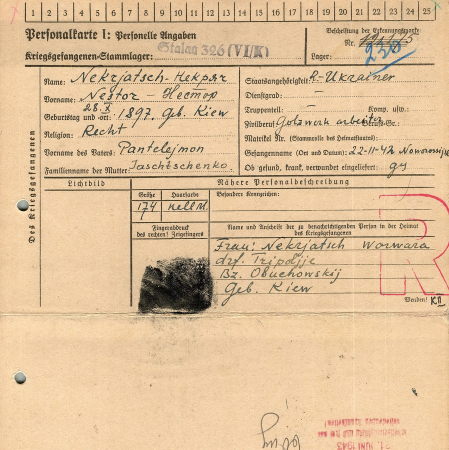 1 2 3 4 5 6 7 8 9 10 11 12 13 14 15 16 17 18 19 20 21 22 23 24 25
Personalkarte I: Personelle Angaben
Kriegsgefangenen-Stammlager: Stalag 326 (VI/K)
Beschriftung der Erkennungsmarke
Nr.
Lager:
Des Kriegsgefangenen
Name: Nekrjatsch - Некряч
Vorname: Nestor - Нестор
Geburtstag und -ort: 28. X 1897, Geb. Kiew
Religion: Recht
Vorname des Vaters: Pantelejmon
Familienname der Mutter: Jaschtschenko
Staatsangehörigkeit: R-Ukrainer
Dienstgrad: –
Truppenteil: – Komp. usw.:
Zivilberuf: arbeiter Berufs-Gr.:
Matrikel Nr. (Stammrolle des Heimatstaates): –
Gefangennahme (Ort und Datum): 22-11-42
Ob gesund, krank, verwundet eingeliefert:
Lichtbild
Nähere Personalbeschreibung
Größe
Haarfarbe
Besondere Kennzeichen:
174
Fingerabdruck
des rechten! Zeigefingers
Name und Anschrift der zu benachrichtigenden Person in der Heimat
des Kriegsgefangenen
Frau: Nekrjatsch Worwara
drf. Tripolje
Bz. Obuchowskij
Geb. Kiew
R
Wenden!
21. JUNI 1943